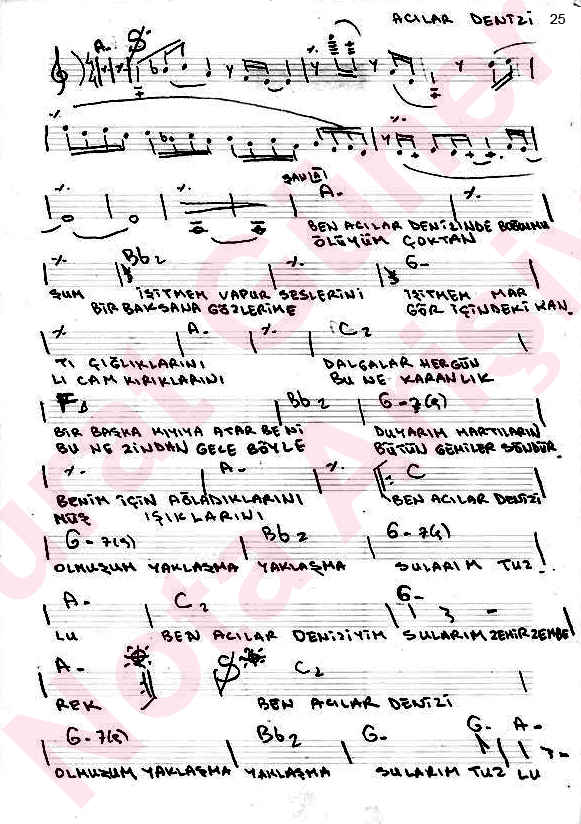 ACILAR DENİZİ 25
A-
ŞANLAİ
A-
BEN ACILAR DENİZİNDE BOĞULMU
ÖLÜYÜM ÇOKTAN
Bb2 G-
ŞUM İŞİTMEM VAPUR SESLERİNİ İŞİTMEM MAR
BİR BAKSANA GÖZLERİME GÖR İÇİNDEKİ KAN
A- C2
TI ÇIĞLIKLARINI DALGALAR HERGÜN
LI CAM KIRIKLARINI BU NE KARANLIK
F Bb2 G-7(9)
BİR BAŞKA KIYIYA ATAR BENİ DUYARIM MARTILARIN
BU NE ZİNDAN GECE BÖYLE BÜTÜN GEMİLER SÖNDÜR
A- C
BENİM İÇİN AĞLADIKLARINI BEN ACILAR DENİZİ
MÜŞ IŞIKLARINI
G-7(9) Bb2 G-7(9)
OLMUŞUM YAKLAŞMA YAKLAŞMA SULARIM TUZ
A- C2 G-
LU BEN ACILAR DENİZİYİM SULARIM ZEHİRZEMBE
A- C2
REK BEN ACILAR DENİZİ
G-7(9) Bb2 G- G- A-
OLMUŞUM YAKLAŞMA YAKLAŞMA SULARIM TUZ LU
Nota Arşivi